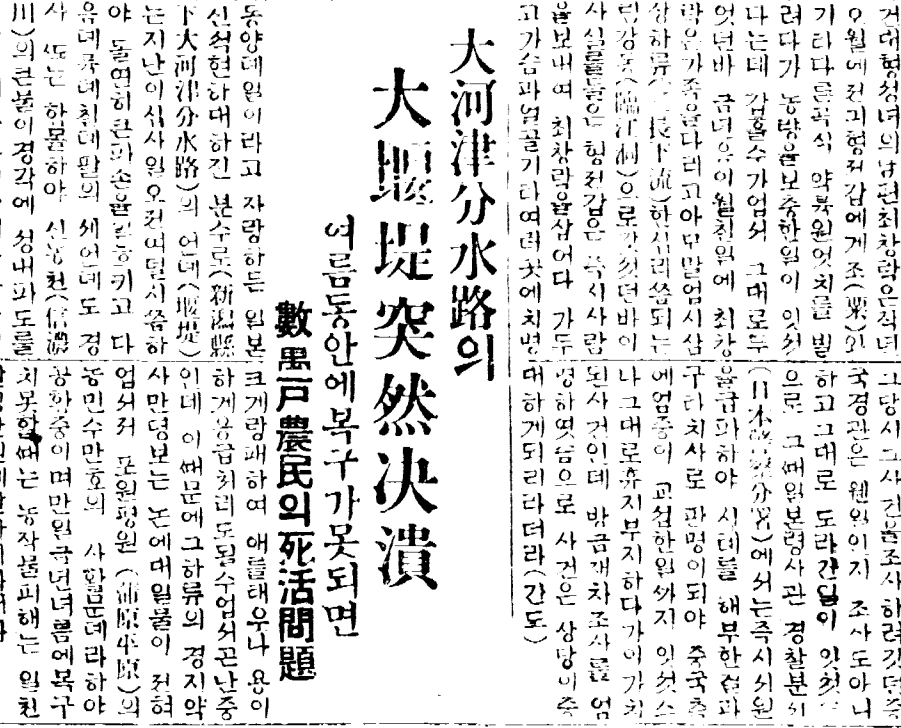 건대형정녀의남편최창락은작년
오월에전긔형정갑에게조(粟)와
기타다른곡식 약륙원엇치를 빌
려다가 농량을보충한일이 잇섯
다는데 갑흘수가업서 그대로두
엇던바 금년 이월칠일에 최창
락은가족을다리고아모말업시삼
상하류(長下流)한시리쯤되는
림강동(臨江洞)으로갓섯던바이
사실을들은 형정갑은 즉시사람
을보내여 최창락을잡어다 가두
고가슴과얼골기타여러곳에치명
그당시그사건을조사하려갓던중
국경관은웬일인지 조사도아니
하고그대로 도라간일이 잇섯
으로 그때일본령사관 경찰분서
(日本領警分署)에서는즉시서원
을급파하야 시톄를 해부한결과
구타치사로 판명이되야 중국측
에엄중이 교섭한일까지 잇섯스
나그대로휴지부지하다가이가치
된사건인데 방금재차조사를 엄
명하엿슴으로 사건은 상당이중
대하게되리라더라(간도)
大河津分水路의
大堰堤突然決潰
여름동안에복구가못되면
數萬戶農民의死活問題
동양뎨일이라고 자랑하든 일본
신석현하대하진 분수로(新潟縣
下大河津分水路)의 언뎨(堰堤)
는지난이십사일오전여덜시쯤하
야 돌연히큰파손을일흐키고 다
음뎨륙뎨칠뎨팔의 세언뎨도 경
사 또는 함몰하야 신농천(信濃
川)의큰물이경각에 성내파도를
크게랑패하여 애를태우나 용이
하게응급처리도될수업서곤난중
인데 이때문에그하류의 경지약
사만뎡보는 논에대일물이 전혀
업서서 포원평원(蒲原平原)의
농민수만호의 사활문뎨라하야
공황중이며만일금년녀름에복구
치못할때는 농작물피해는 일천